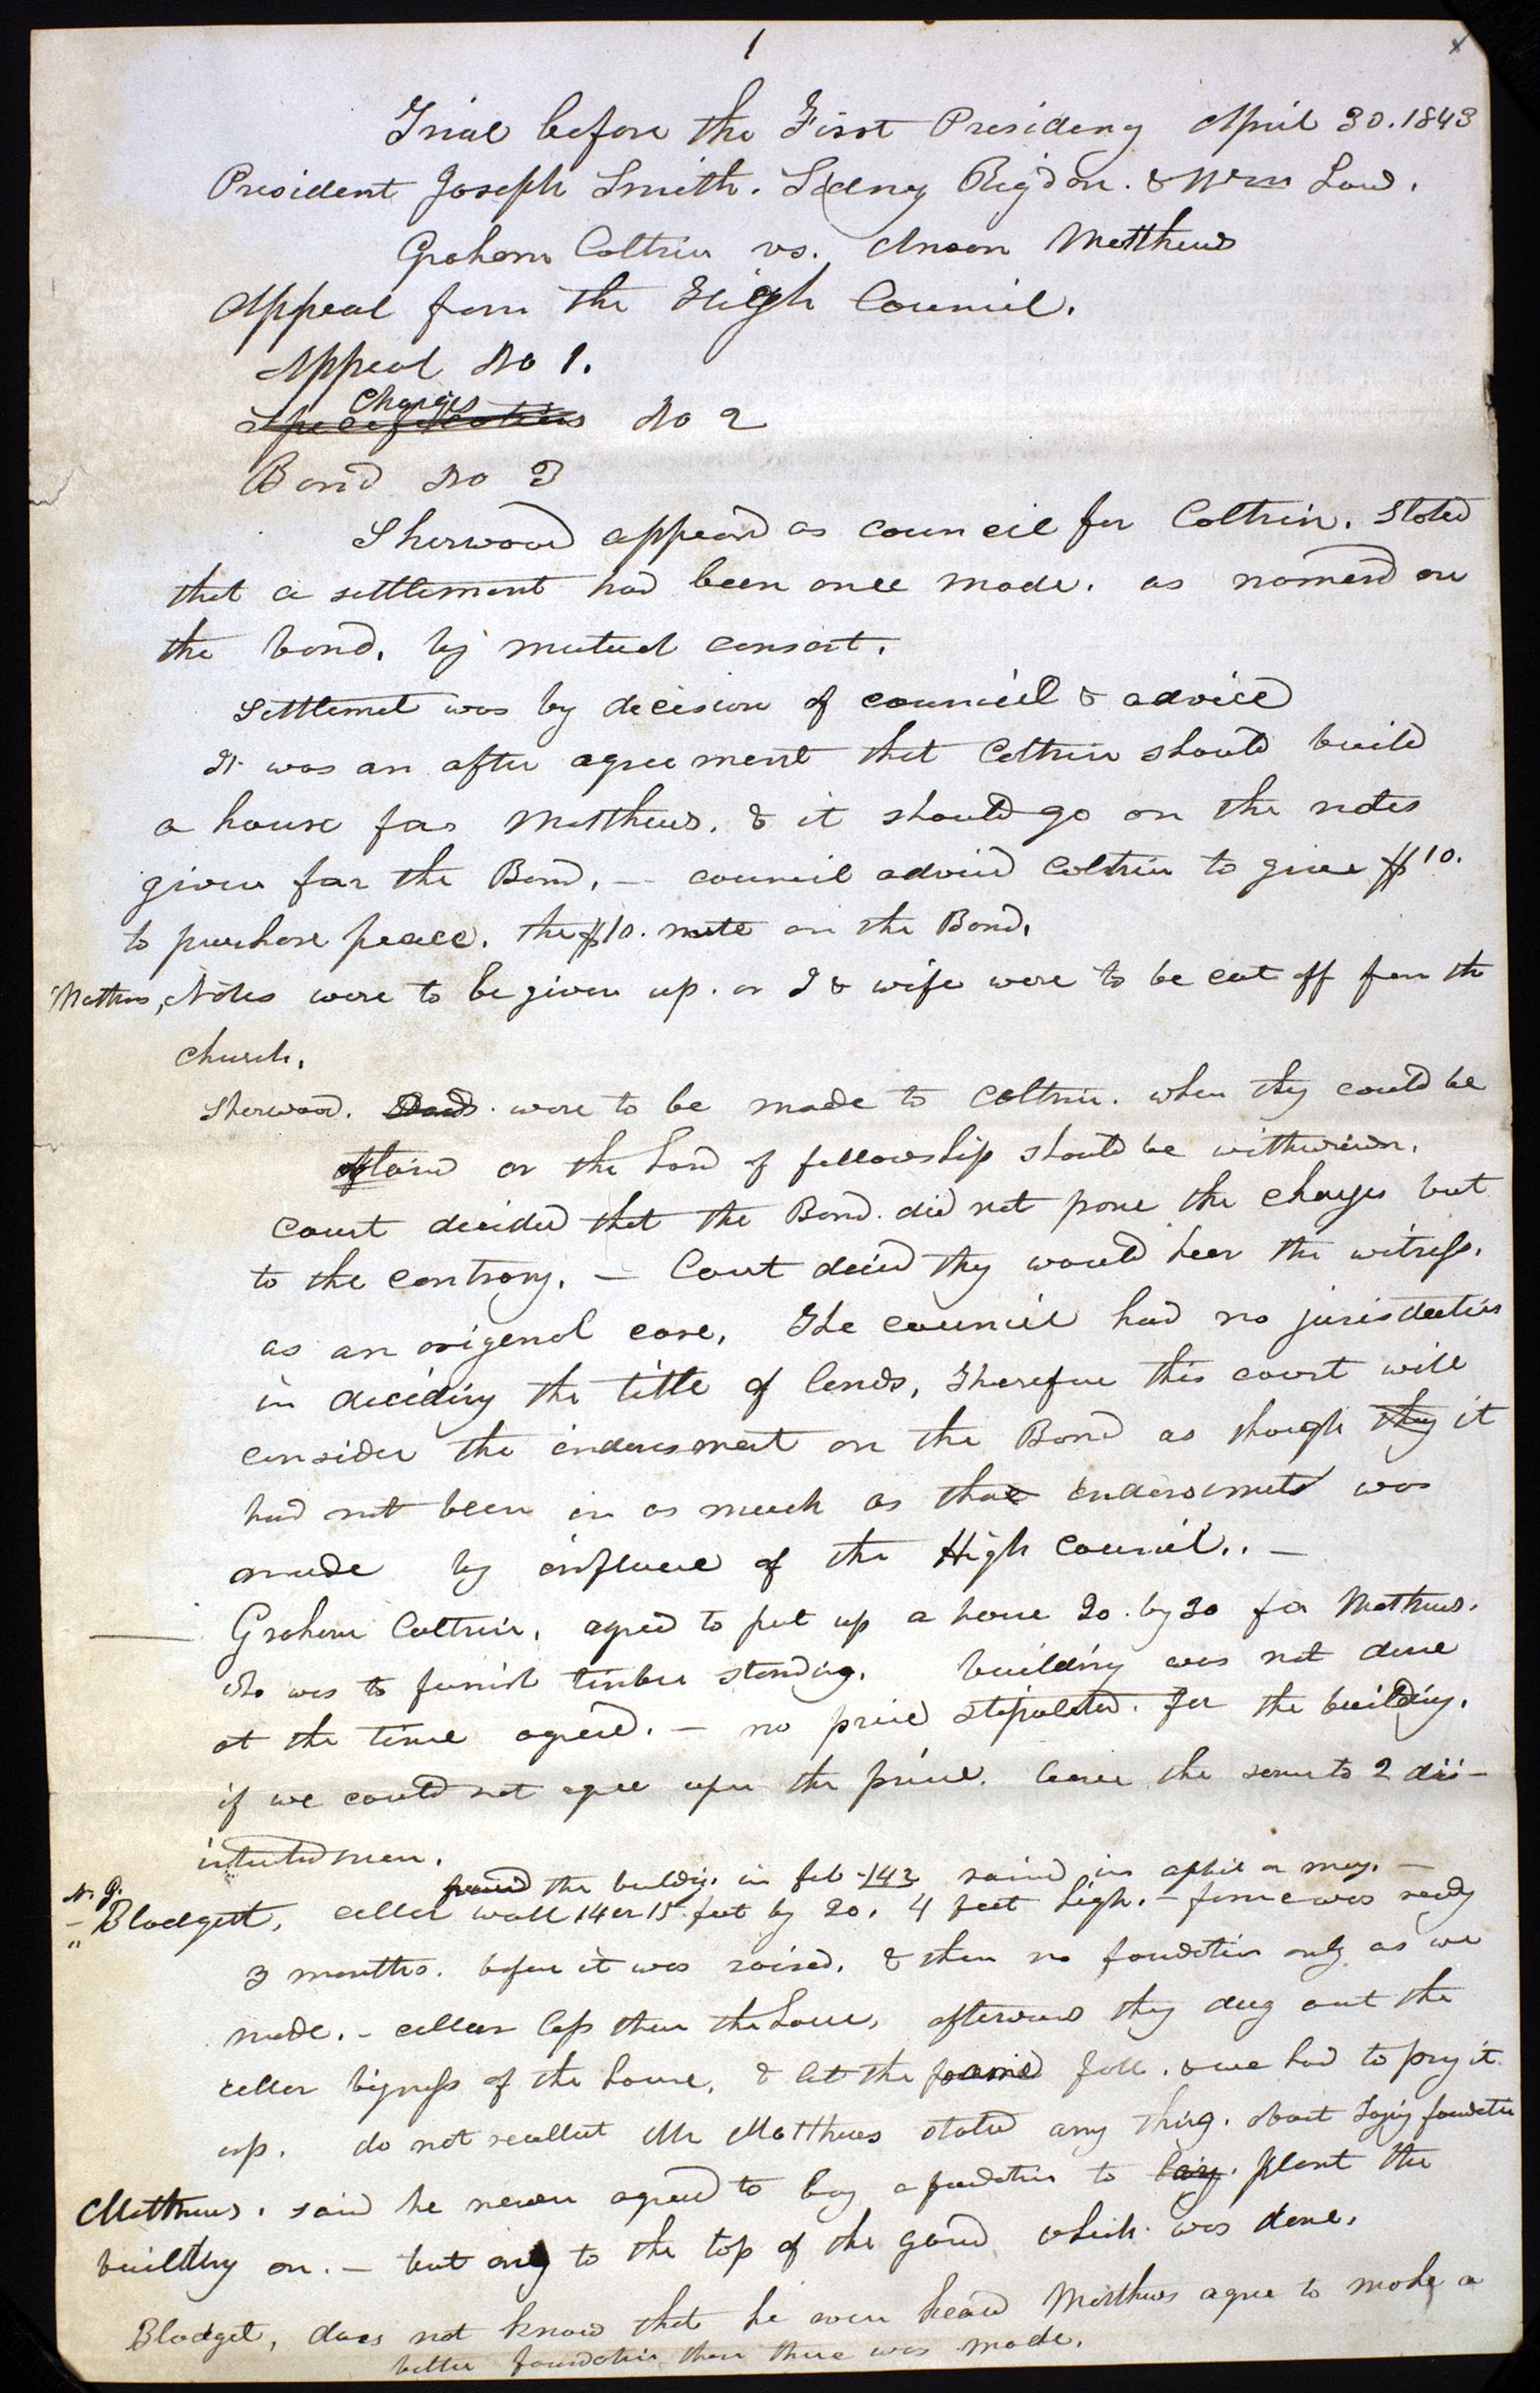 1
Trial before the First Presidency April 30. 1843
President Joseph Smith. Sidney Rigdon. & Wm Law.
Graham Coltrin vs. Anson Matthews
Appeal from the High Council.
Appeal No 1.
Charges
Specifications No 2
Bond No 3
Sherwood appeard as council for Coltrin. Stated
that a settlement had been once made. as named on
the bond. by mutual consent.
Settlemet was by decision of council & advice
It was an after agreement that Coltrin should build
a house for Matthews. & it should go on the notes
given for the Bond. — council advised Coltrin to give $10.
to purchase peace. the $10. note on the Bond.
Mathws, Notes were to be given up. or I & wife were to be cut off from the
church.
Sherwood. Deeds. were to be made to Coltrin. when they could be
obtaind or the hand of fellowship should be withdrawn.
Court decided that the Bond. did not prove the charges but
to the contrary. — Court decid they would hear the witness.
as an origenal case. The council had no jurisdiction
in deciding the title of lands, Therefore this court will
consider the endorsment on the Bond as though they it
had not been in as much as that endorsements was
made by influence of the High Council.. —
Graham Coltrin. agred to put up a house 20. by 30 for Mathews.
who was to furnish timber standing. building was not done
at the time agreed. — no price stipulated. for the building.
if we could not agree upon the price. leave the same to 2 dis-
intrested men.
framed the buldig. in feb - 142 raised in april or may. —
N. G.
— Blodgett, celler wall 14 or 15 feet by 20. 4 feet high. — frame was ready
"
3 months. before it was raised. & then no foundation only as we
made. - celler less than the house, afterward they dug out the
celler bigness of the house, & let the frame fall. & we had to pry it
up. do not recollect Mr Matthews stated any thing. about layig foundation
Matthews. said he never agreed to lay a foundation to lay. plant the
building on. — but only to the top of the ground which was done.
Blodget, does not know that he ever heard Matthews agree to make a
better foundation than there was made.